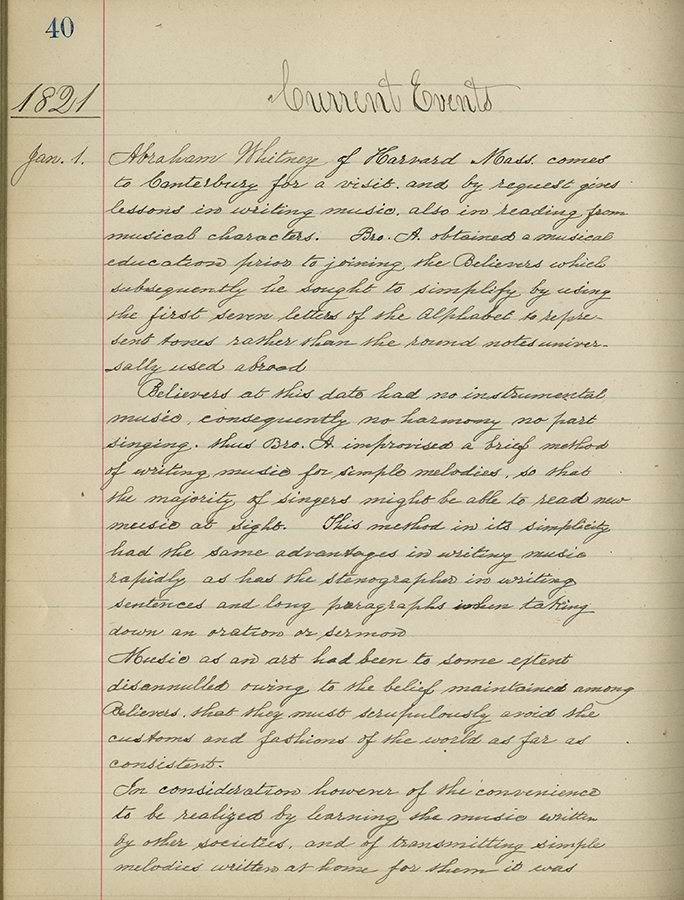 40
1821
Current Events
Jan. 1. Abraham Whitney of Harvard Mass. comes
to Canterbury for a visit. and by request gives
lessons in writing music. also in reading from
musical characters. Bro. A. obtained a musical
education prior to joining the Believers which
subsequently he sought to simplify by using
the first seven letters of the Alphabet to repre-
sent tones rather than the round notes univer-
sally used abroad
Believers at this date had no instrumental
music, consequently no harmony no part
singing. thus Bro. A. improvised a brief method
of writing music for simple melodies, so that
the majority of singers might be able to read new
music at sight. This method in its simplicity
had the same advantages in writing music
rapidly as has the stenographer in writing
sentences and long paragraphs when taking
down an oration or sermon
Music as an art had been to some extent
disannulled owing to the belief maintained among
Believers, that they must scrupulously avoid the
customs and fashions of the world as far as
consistent.
In consideration however of the convenience
to be realized by learning the music written
by other societies, and of transmitting simple
melodies written at home for them it was